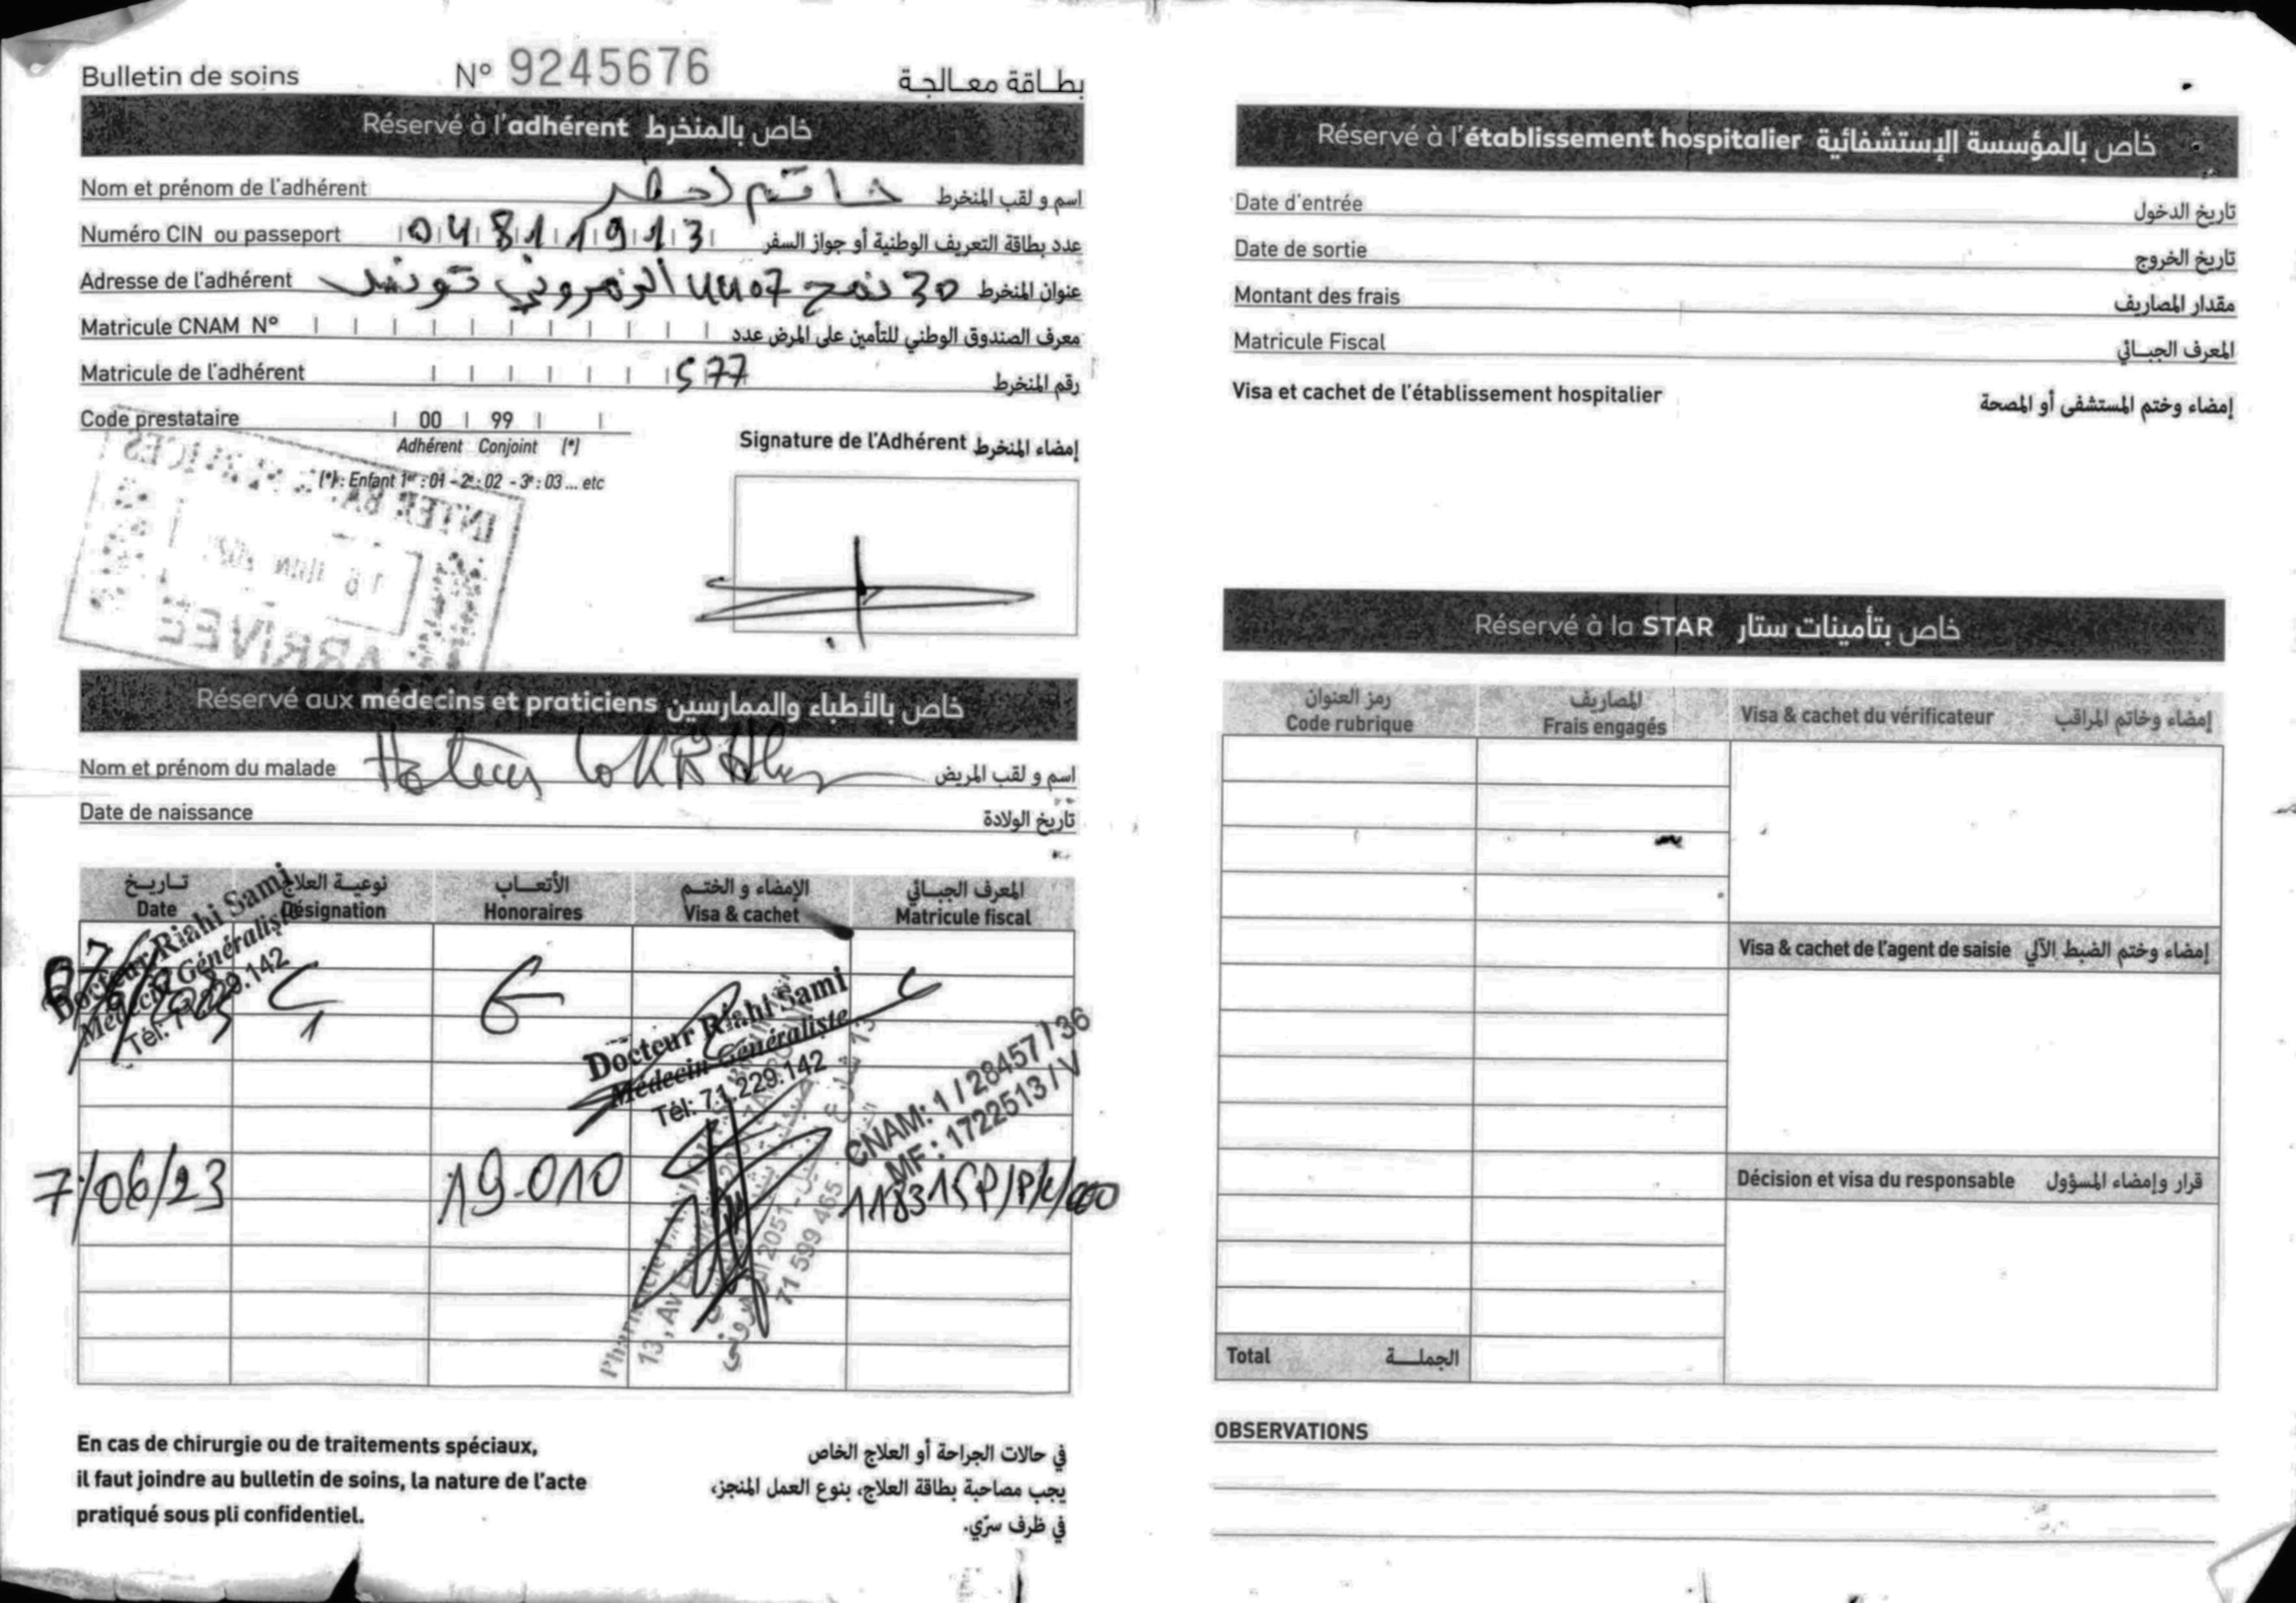 Bulletin de soins N° 9245676 بطاقة معالجة
Réservé à l'adhérent خاص بالمنخرط
Nom et prénom de l'adhérent خاتم لخضر اسم و لقب المنخرط
Numéro CIN ou passeport 04811913 عدد بطاقة التعريف الوطنية أو جواز السفر
Adresse de l'adhérent 30 نهج 4407 الزهروني تونس عنوان المنخرط
Matricule CNAM N° معرف الصندوق الوطني للتأمين على المرض عدد
Matricule de l'adhérent 577 رقم المنخرط
Code prestataire 00 99
Adhérent Conjoint (*)
(*) : Enfant 1er : 01 - 2e : 02 - 3e : 03 ... etc
Signature de l'Adhérent إمضاء المنخرط
INTER SERVICES
ARRIVEE
Réservé aux médecins et praticiens خاص بالأطباء والممارسين
Nom et prénom du malade Hatem اسم و لقب المريض
Date de naissance تاريخ الولادة
تاريخ نوعية العلاج الأتعاب الإمضاء و الختم المعرف الجبائي
Date Désignation Honoraires Visa & cachet Matricule fiscal
Docteur Riahi Sami
Médecin Généraliste
Tél: 71.229.142
C1
Docteur Riahi Sami
Médecin Généraliste
Tél: 71.229.142
CNAM: 1 / 28457 / 36
MF : 1722513 / V
7/06/23 19.010
71 599 465
En cas de chirurgie ou de traitements spéciaux,
il faut joindre au bulletin de soins, la nature de l'acte
pratiqué sous pli confidentiel.
في حالات الجراحة أو العلاج الخاص
يجب مصاحبة بطاقة العلاج، بنوع العمل المنجز،
في ظرف سرّي.
Réservé à l'établissement hospitalier خاص بالمؤسسة الإستشفائية
Date d'entrée تاريخ الدخول
Date de sortie تاريخ الخروج
Montant des frais مقدار المصاريف
Matricule Fiscal المعرف الجبائي
Visa et cachet de l'établissement hospitalier إمضاء وختم المستشفى أو المصحة
Réservé à la STAR خاص بتأمينات ستار
رمز العنوان المصاريف
Code rubrique Frais engagés Visa & cachet du vérificateur إمضاء وخاتم المراقب
Visa & cachet de l'agent de saisie إمضاء وختم الضبط الآلي
Décision et visa du responsable قرار وإمضاء المسؤول
Total الجملة
OBSERVATIONS